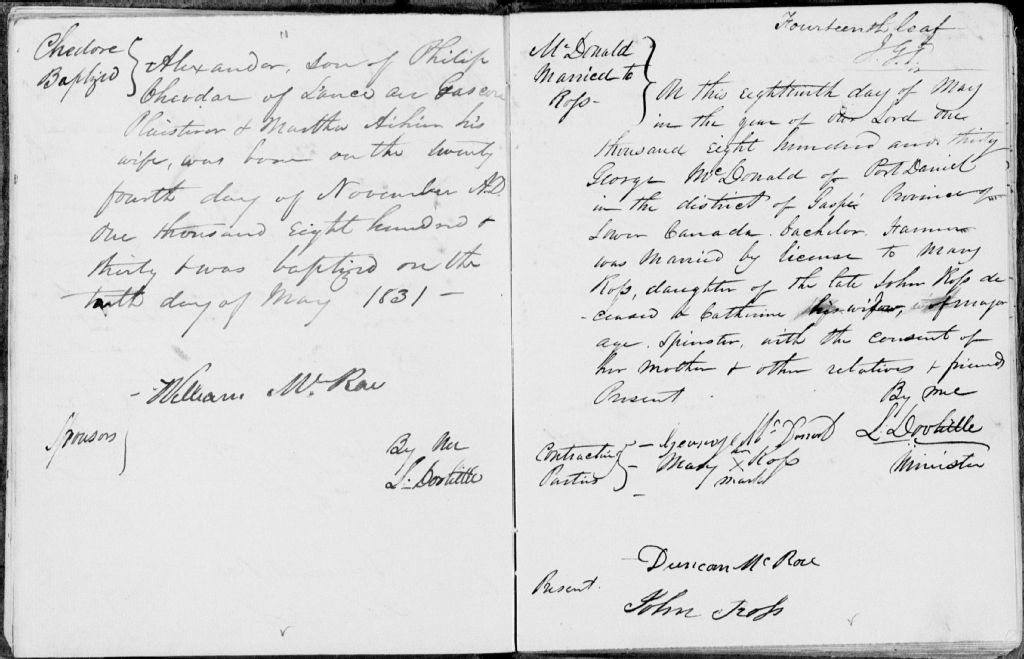 Chedore
Baptized
Alexander, son of Philip
Chedore of L'ance au Gascon
Plaisterer & Martha Aikin his
wife, was born on the twenty
fourth day of November A.D
One thousand Eight hundred &
thirty & was baptized on the
tenth day of May 1831 -
William Mc Rae
Sponsors
By Me
L. Doolittle
Fourteenth leaf
McDonald
Married to
Ross-
On this eighteenth day of May
in the year of our Lord One
thousand Eight hundred and thirty
George McDonald of Port Daniel
in the district of Gaspé Province of
Lower Canada. Bachelor. Farmer
was Married by license to Mary
Ross, daughter of the late John Ross de-
-ceased & Catherine his wife, of major
age. Spinster, with the consent of
her Mother & other relatives & friends
Present
By me
L. Doolittle
Minister
Contracting
Parties
- George Mc Donald
- Mary X Ross
mark
Present.
Duncan McRae
John Ross